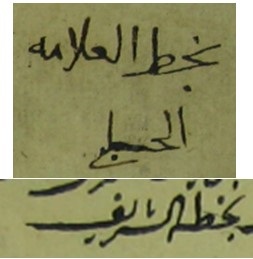 بخط العلامه
الحنبلي
بخطه الشريف